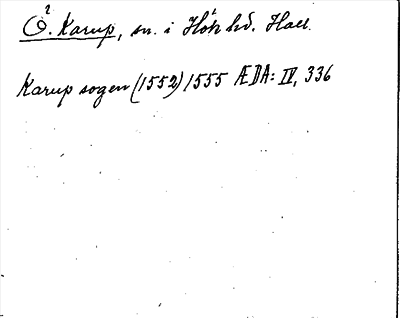 Ö². Karup, sn. i Hök hd. Hall.
Karup sogen (1552) 1555 ÆDA: IV, 336